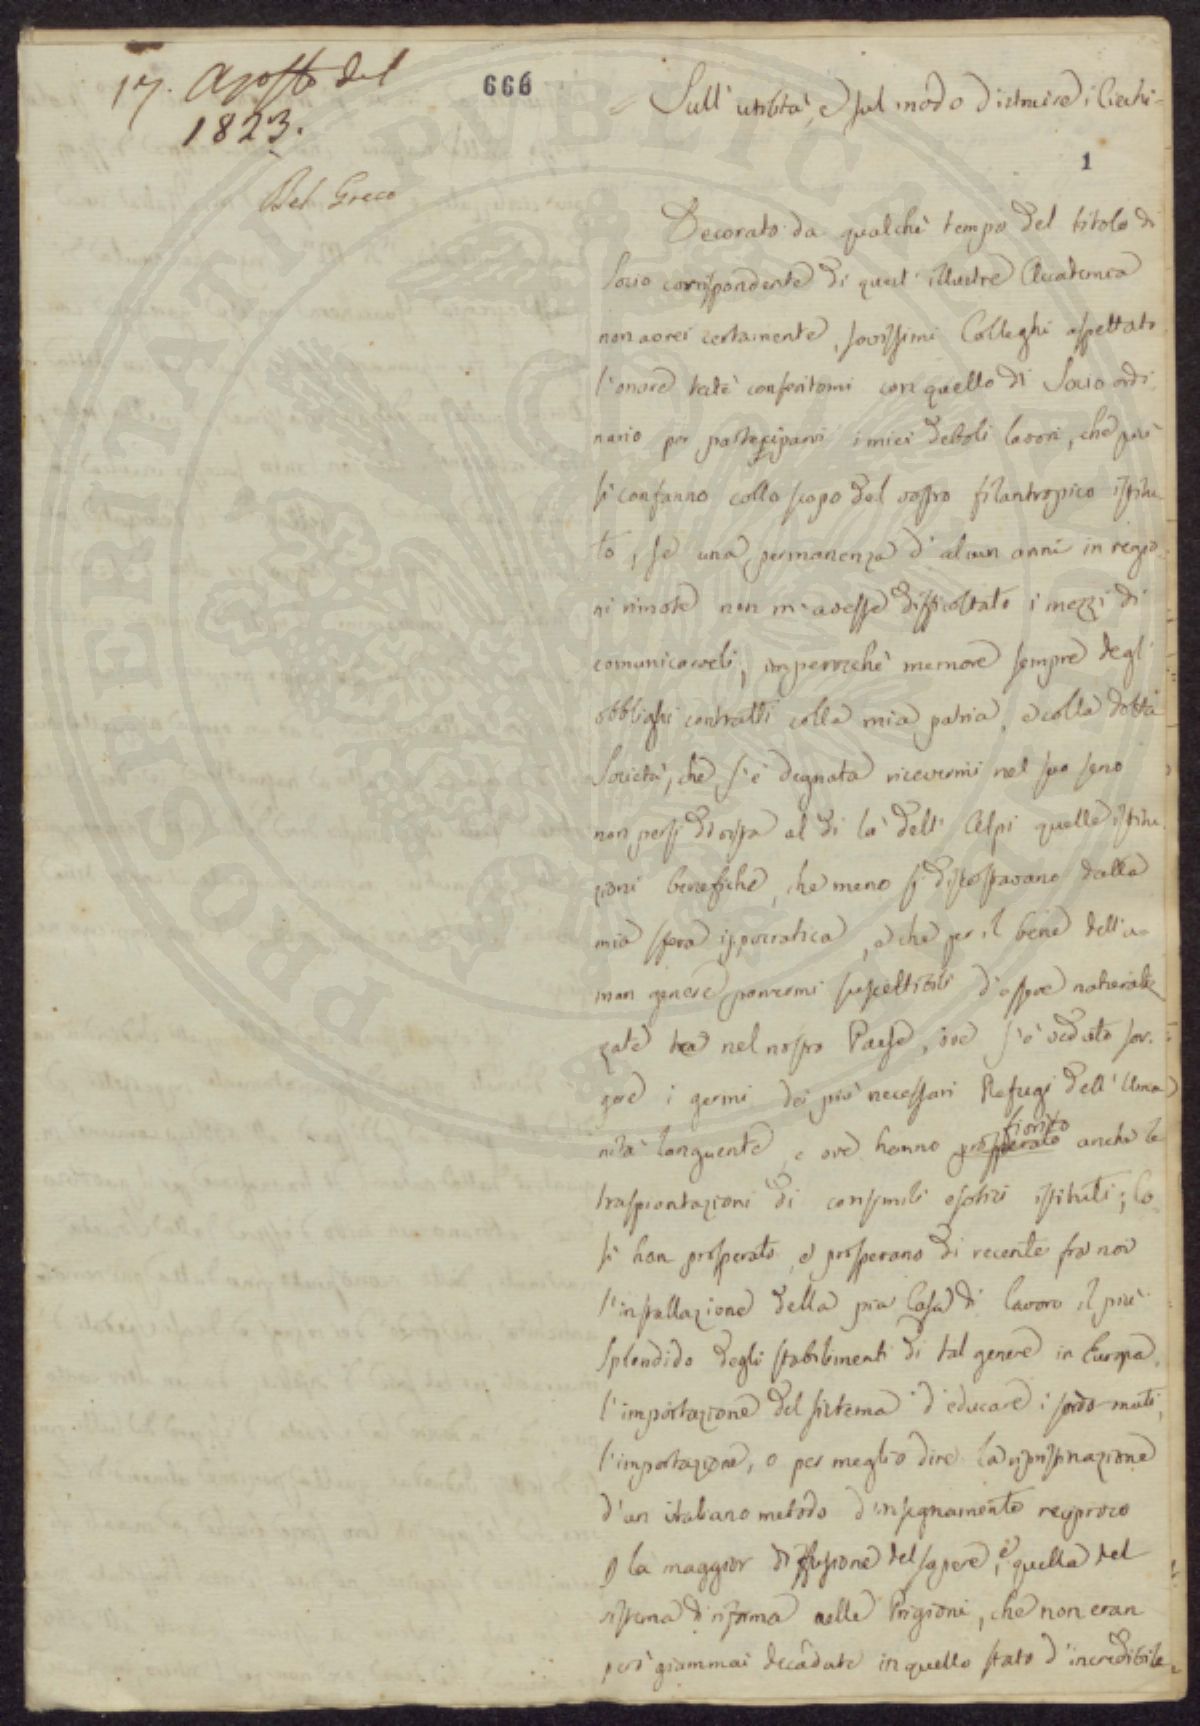 17. Agosto del
1823.
Del Greco
666
Sull' utilità, e sul modo d'istruire i Ciechi
1
Decorato da qualche tempo del titolo di
Socio corrispondente di quest' illustre Accademia
non avrei certamente, savissimi Colleghi aspettato
l'onore testè conferitomi con quello di Socio ordi
nario per parteciparvi i miei deboli lavori, che più
si confanno collo scopo del vostro filantropico istitu-
to, se una permanenza d' alcun anni in regio-
ni rimote non m' avesse difficoltato i mezzi di
comunicarveli, imperocchè memore sempre degl'
obblighi contratti colla mia patria, e colla dotta
Società, che s'è degnata ricevermi nel suo seno
non persi di vista al di là dell' Alpi quelle istitu
zioni benefiche, che meno si discostavano dalla
mia sfera ippocratica, e che per il bene dell' u-
man genere parvermi suscettibili d'essere naturaliz
zate nel nostro Paese, ove s'è veduto sor-
gere i germi dei più necessari Refugi dell' Uma
nità languente, e ove hanno prosperato fiorito anche le
traspiantazioni di consimili esotici istituti; co
sì han prosperato, e prosperano di recente fra noi
l'installazione della pia Casa di lavoro il più
splendido degli stabilimenti di tal genere in Europa,
l'importazione del sistema d'educare i sordo-muti,
l'importazione, o per meglio dire la ripristinazione
d'un italiano metodo d'insegnamento reciproco
p la maggior diffusione del sapere, e quella del
sistema di riforma nelle Prigioni, che non eran
però giammai decadute in quello stato d'incredibile